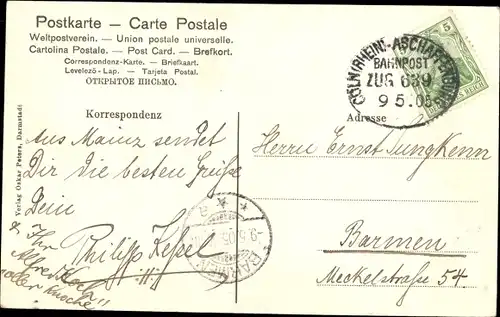 Postkarte — Carte Postale
Weltpostverein. — Union postale universelle.
Cartolina Postale. — Post Card. — Brefkort.
Correspondenz-Karte. — Briefkaart.
Levelező-Lap. — Tarjeta Postal.
ОТКРЫТОЕ ПИСЬМО.
Korrespondenz
Adresse
5
CÖLN (RHEIN)-ASCHAFFENBURG
BAHNPOST
ZUG 639
9 5.05
Verlag Oskar Peters, Darmstadt
Aus Mainz sendet
Dir die besten Grüße
Dein
Philipp Kessel
& Ihr
Alfred Koch
oder Knochen"
Herrn Ernst Jungkenn
Barmen
Meckelstraße 54.
BARMEN
9.5.05
* a